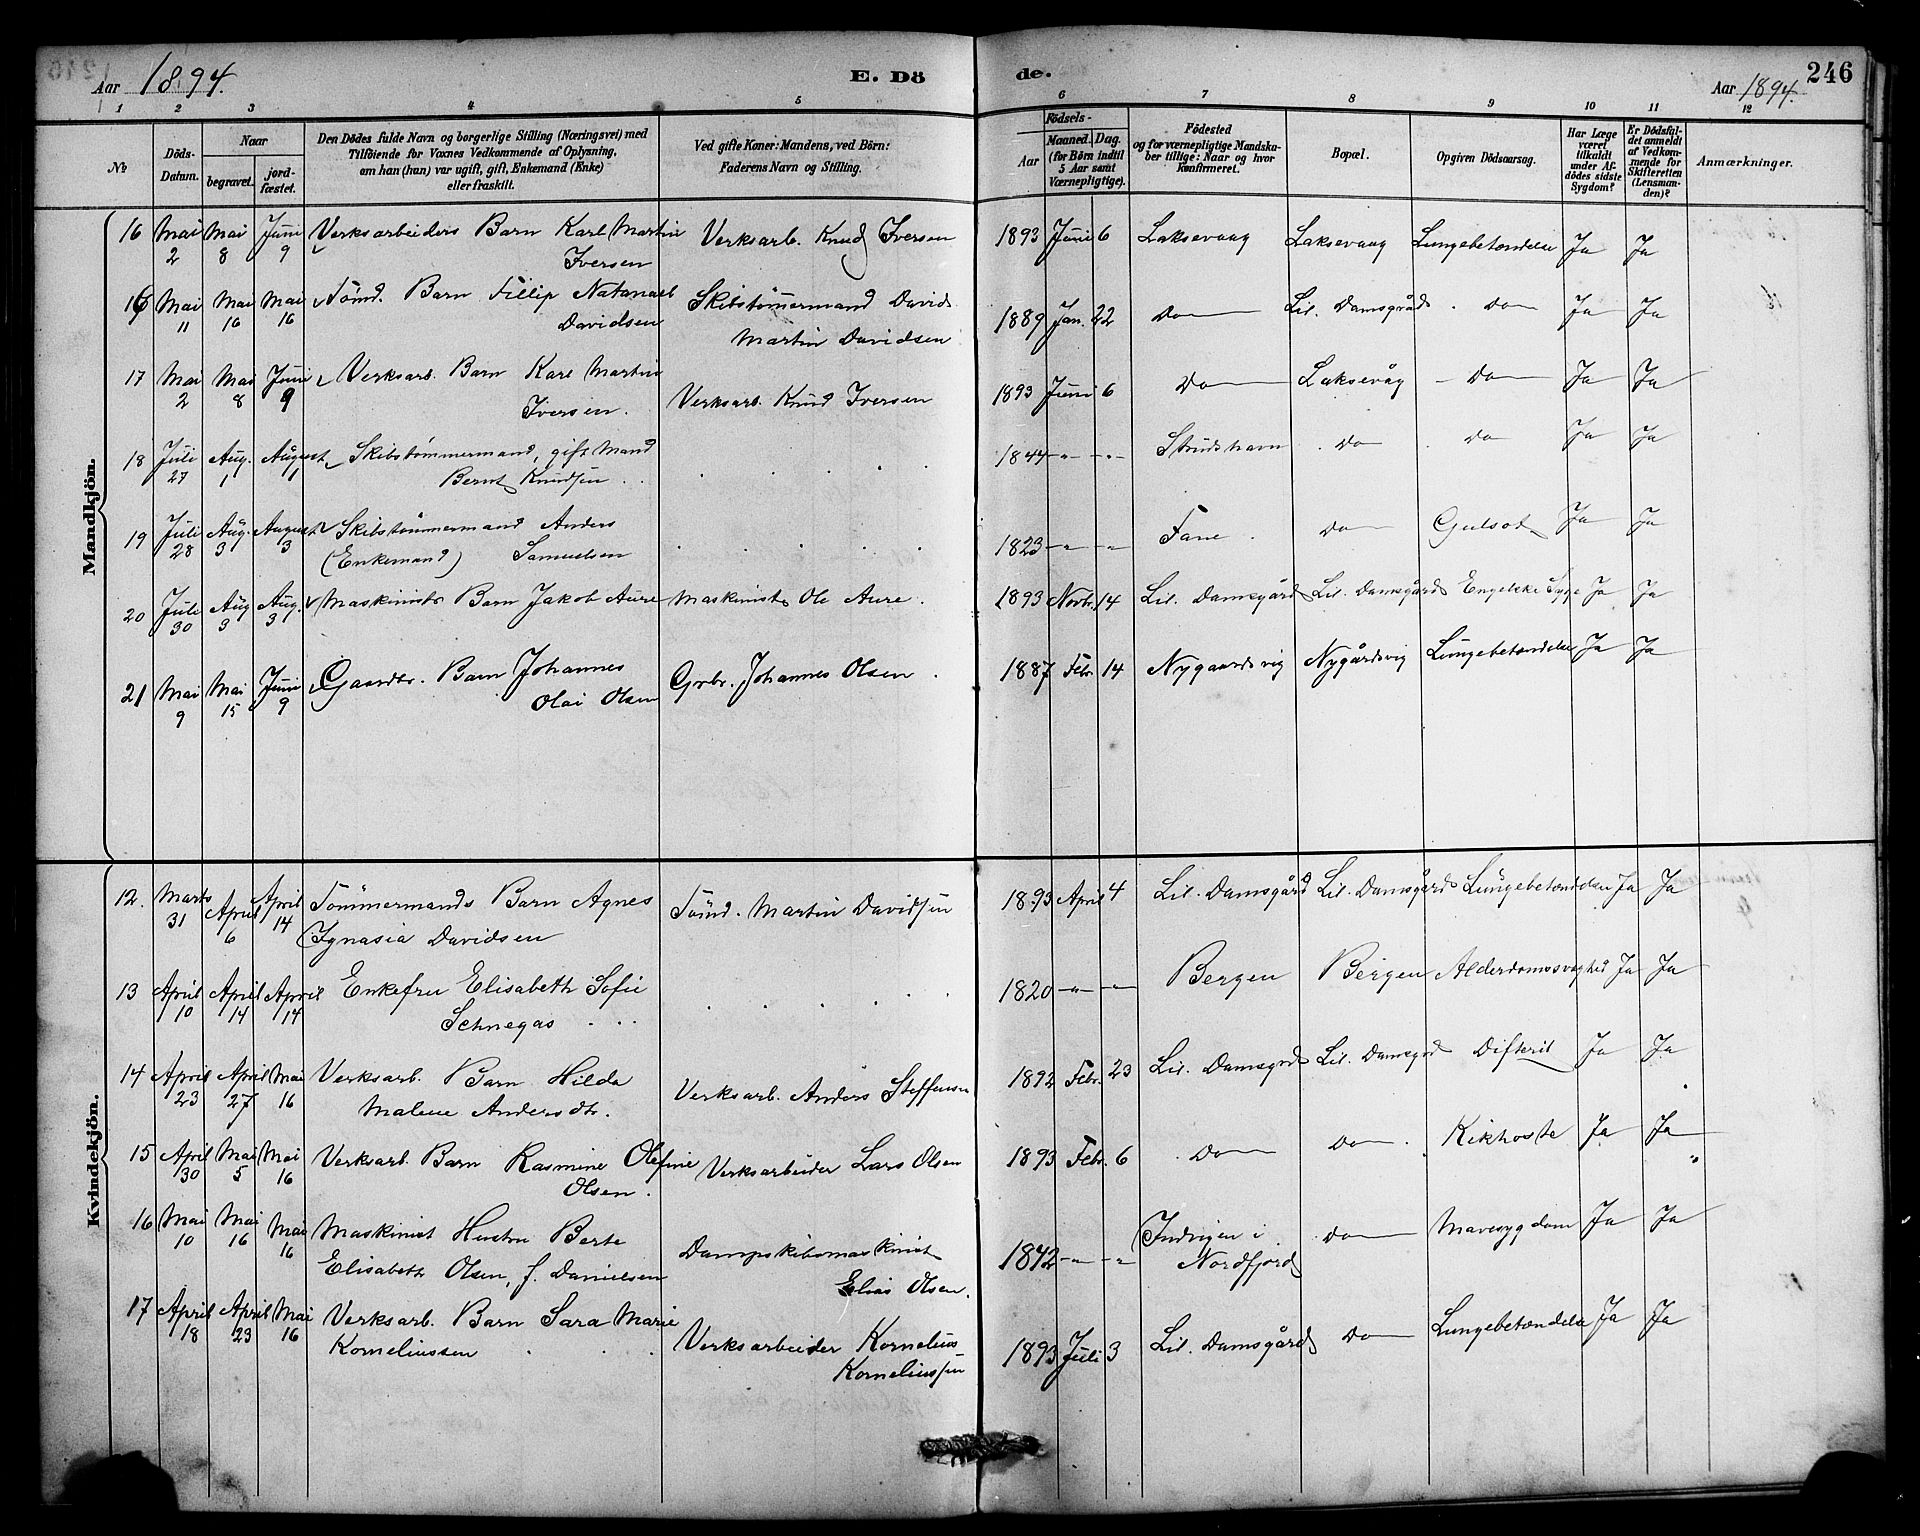 Aar 1894. E. Dö de. Aar 1894. 246
1 2 3 4 5 6 7 8 9 10 11 12
No
Döds-Datum.
Naar
begravet.
jord-fæstet.
Den Dödes fulde Navn og borgerlige Stilling (Næringsvei) med
Tilföiende for Voxnes Vedkommende af Oplysning,
om han (hun) var ugift, gift, Enkemand (Enke)
eller fraskilt.
Ved gifte Koner: Mandens, ved Börn:
Faderens Navn og Stilling.
Födsels-
Aar
Maaned. Dag.
(for Börn indtil
5 Aar samt
Værnepligtige).
Födested
og for værnepligtige Mandska-
ber tillige: Naar og hvor
konfirmeret.
Bopæl.
Opgiven Dödsaarsag.
Har Læge
været
tilkaldt
under Af-
dödes sidste
Sygdom?
Er Dödsfal-
det anmeldt
af Vedkom-
mende for
Skifteretten
(Lensman-
den)?
Anmærkninger.
Mandkjön.
16 Mai 2 Mai 8 Juni 9 Verksarbeiders Barn Karl Martin Iversen Verksarb. Knud Iversen 1893 Juni 6 Laksevaag Laksevaag Lungebetændelse Ja Ja
16 Mai 11 Mai 16 Mai 16 Tömd. Barn Fillip Natanael Davidsen Skibstömmermand David Martin Davidsen 1889 Jan. 22 Do Lil. Damsgård Do Ja Ja
17 Mai 2 Mai 8 Juni 9 Verksarb. Barn Karl Martin Iversen. Verksarb. Knud Iversen 1893 Juni 6 Do Laksevåg Do Ja Ja
18 Juli 27 Aug. 1 August 1 Skibstömmermand, gift Mand Bernt Knudsen 1844 -"- -"- Strudshavn Do Do Ja Ja
19 Juli 28 Aug. 3 August 3 Skibstömmermand Anders (Enkemand) Samuelsen 1823 -"- -"- Fane Do Gulsot Ja Ja
20 Juli 30 Aug 3 Aug. 3 Maskinists Barn Jakob Aure Maskinist Ole Aure. 1893 Novbr. 14 Lil. Damsgård Lil. Damsgård Engelske Syge Ja Ja
21 Mai 9 Mai 15 Juni 9 Gaardbr. Barn Johannes Olai Olsen Grbr. Johannes Olsen 1887 Febr. 14 Nygaardsvig Nygårdsvig Lungebetændelse Ja Ja
Kvindekjön.
12. Marts 31 April 6 April 14 Tömmermands Barn Agnes Ignasia Davidsen Tömd. Martin Davidsen 1893 April 4 Lil. Damsgård Lil. Damsgård Lungebetændelse Ja Ja
13 April 10 April 14 April 14 Enkefru Elisabeth Sofie Schnegas 1820 -"- -"- Bergen Bergen Alderdomssvaghed Ja Ja
14 April 23 April 27 Mai 16 Verksarb. Barn Hilda Malene Andersdtr. Verksarb. Anders Steffensen 1892 Febr. 23 Lil. Damsgrd Lil. Damsgrd Difterit Ja Ja
15 April 30 Mai 5 Mai 16 Verksarb. Barn Rasmine Olefine Olsen. Verksarbeider Lars Olsen 1893 Febr. 6 Do Do Kikhoste Ja Ja
16 Mai 10 Mai 16 Mai 16 Maskinist Hustru Berte Elisabeth Olsen, f. Danielsen Dampskibsmaskinist Elias Olsen. 1842 -"- -"- Indvigen i Nordfjord Do Mavesygdom Ja Ja
17 April 18 April 23 Mai 16 Verksarb. Barn Sara Marie Korneliussen Verksarbeider Kornelius Korneliussen 1893 Juli 3 Lil. Damsgård Do Lungebetændelse Ja Ja